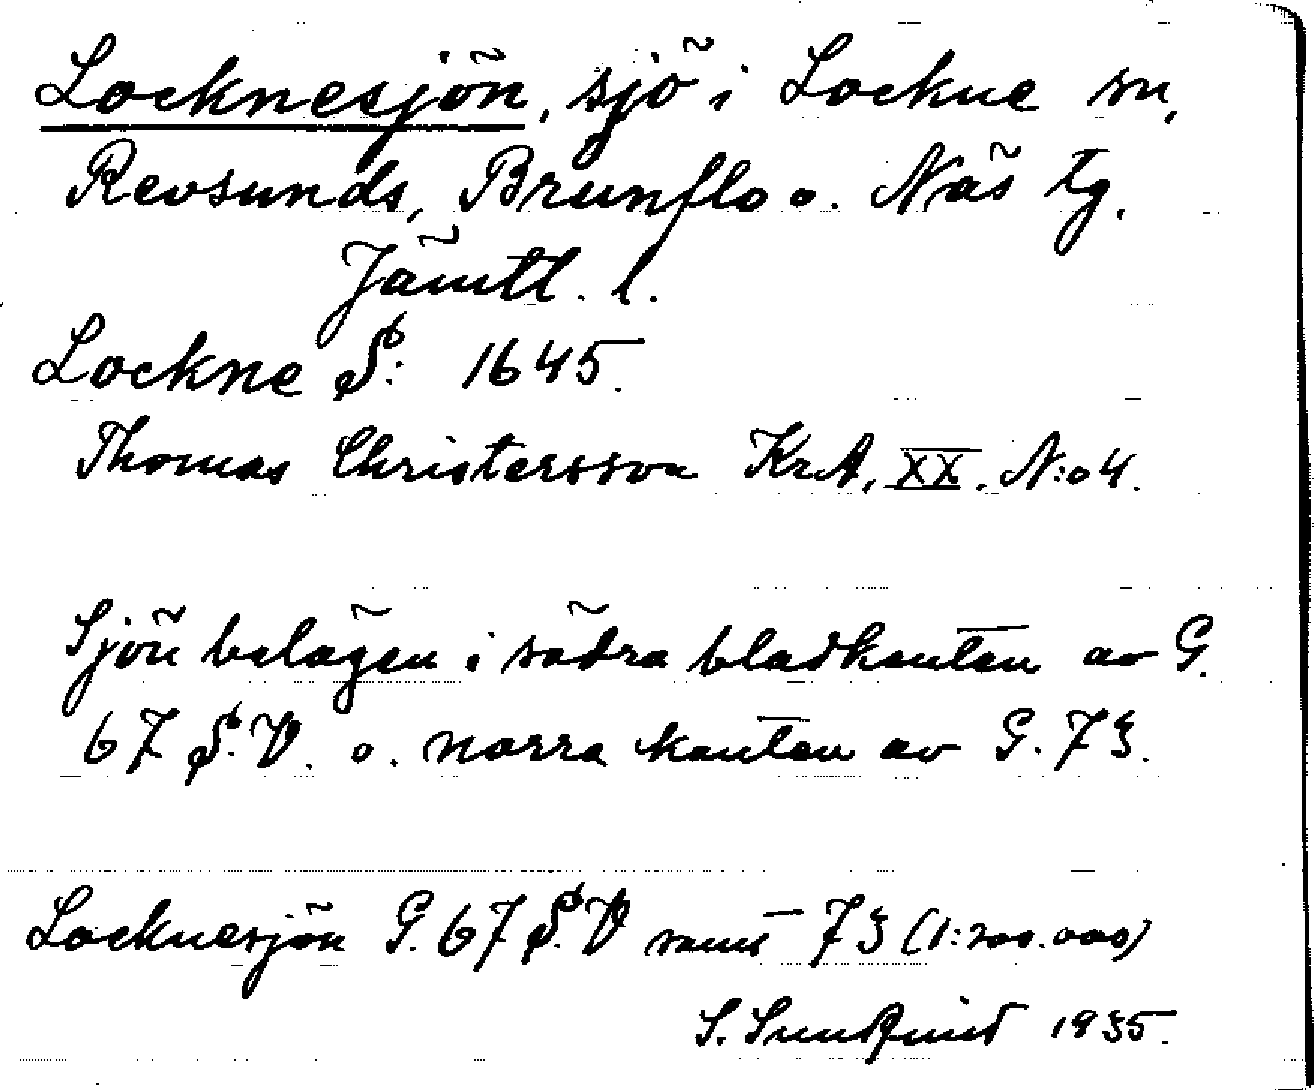 Locknesjön, sjö i Lockne sn,
Revsunds, Brunflo o. Näs tg.
Jämtl. l.
Lockne S: 1645.
Thomas Christersson KrA, XX. N:o 4.
Sjön belägen i södra bladkanten av G.
67 S.V. o. norra kanten av G. 73.
Locknesjön G. 67 S.V samt 73 (1:200.000)
S. Sundquist 1935.